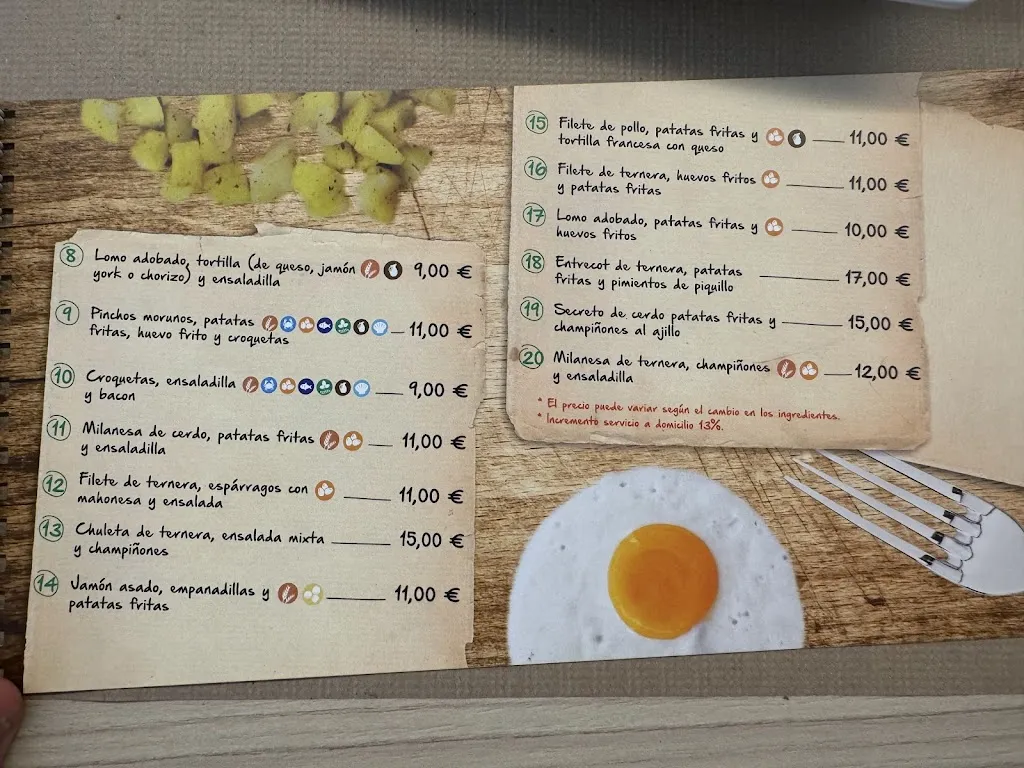 8 Lomo adobado, tortilla (de queso, jamón 9,00 €
york o chorizo) y ensaladilla
9 Pinchos morunos, patatas 11,00 €
fritas, huevo frito y croquetas
10 Croquetas, ensaladilla 9,00 €
y bacon
11 Milanesa de cerdo, patatas fritas 11,00 €
y ensaladilla
12 Filete de ternera, espárragos con 11,00 €
mahonesa y ensalada
13 Chuleta de ternera, ensalada mixta 15,00 €
y champiñones
14 Jamón asado, empanadillas y 11,00 €
patatas fritas
15 Filete de pollo, patatas fritas y 11,00 €
tortilla francesa con queso
16 Filete de ternera, huevos fritos 11,00 €
y patatas fritas
17 Lomo adobado, patatas fritas y 10,00 €
huevos fritos
18 Entrecot de ternera, patatas 17,00 €
fritas y pimientos de piquillo
19 Secreto de cerdo patatas fritas y 15,00 €
champiñones al ajillo
20 Milanesa de ternera, champiñones 12,00 €
y ensaladilla
* El precio puede variar según el cambio en los ingredientes.
* Incremento servicio a domicilio 13%.